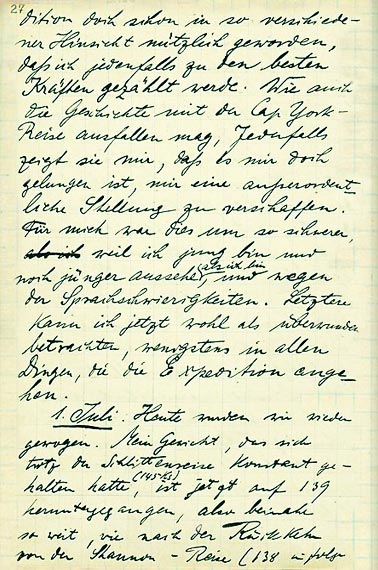 24
dition doch schon in so verschiede-
ner Hinsicht nützlich geworden,
daß ich jedenfalls zu den besten
Kräften gezählt werde. Wie auch
die Geschichte mit der Cap York-
Reise ausfallen mag, Jedenfalls
zeigt sie mir, daß es mir doch
gelungen ist, mir eine außerordent-
liche Stellung zu verschaffen.
Für mich war dies um so schwerer,
also ich weil ich jung bin und
noch jünger aussehe, als ich bin, und wegen
der Sprachschwierigkeiten. Letztere
kann ich jetzt wohl als überwunden
betrachten, wenigstens in allen
Dingen, die die Expedition ange-
hen.
1. Juli. Heute wurden wir wieder
gewogen. Mein Gewicht, das sich
trotz der Schlittenreise konstant ge-
halten hatte, (145 ) ist jetzt auf 139
heruntergegangen, also beinahe
so weit, wie nach der Rückkehr
von der Shannon-Reise (138 infolge